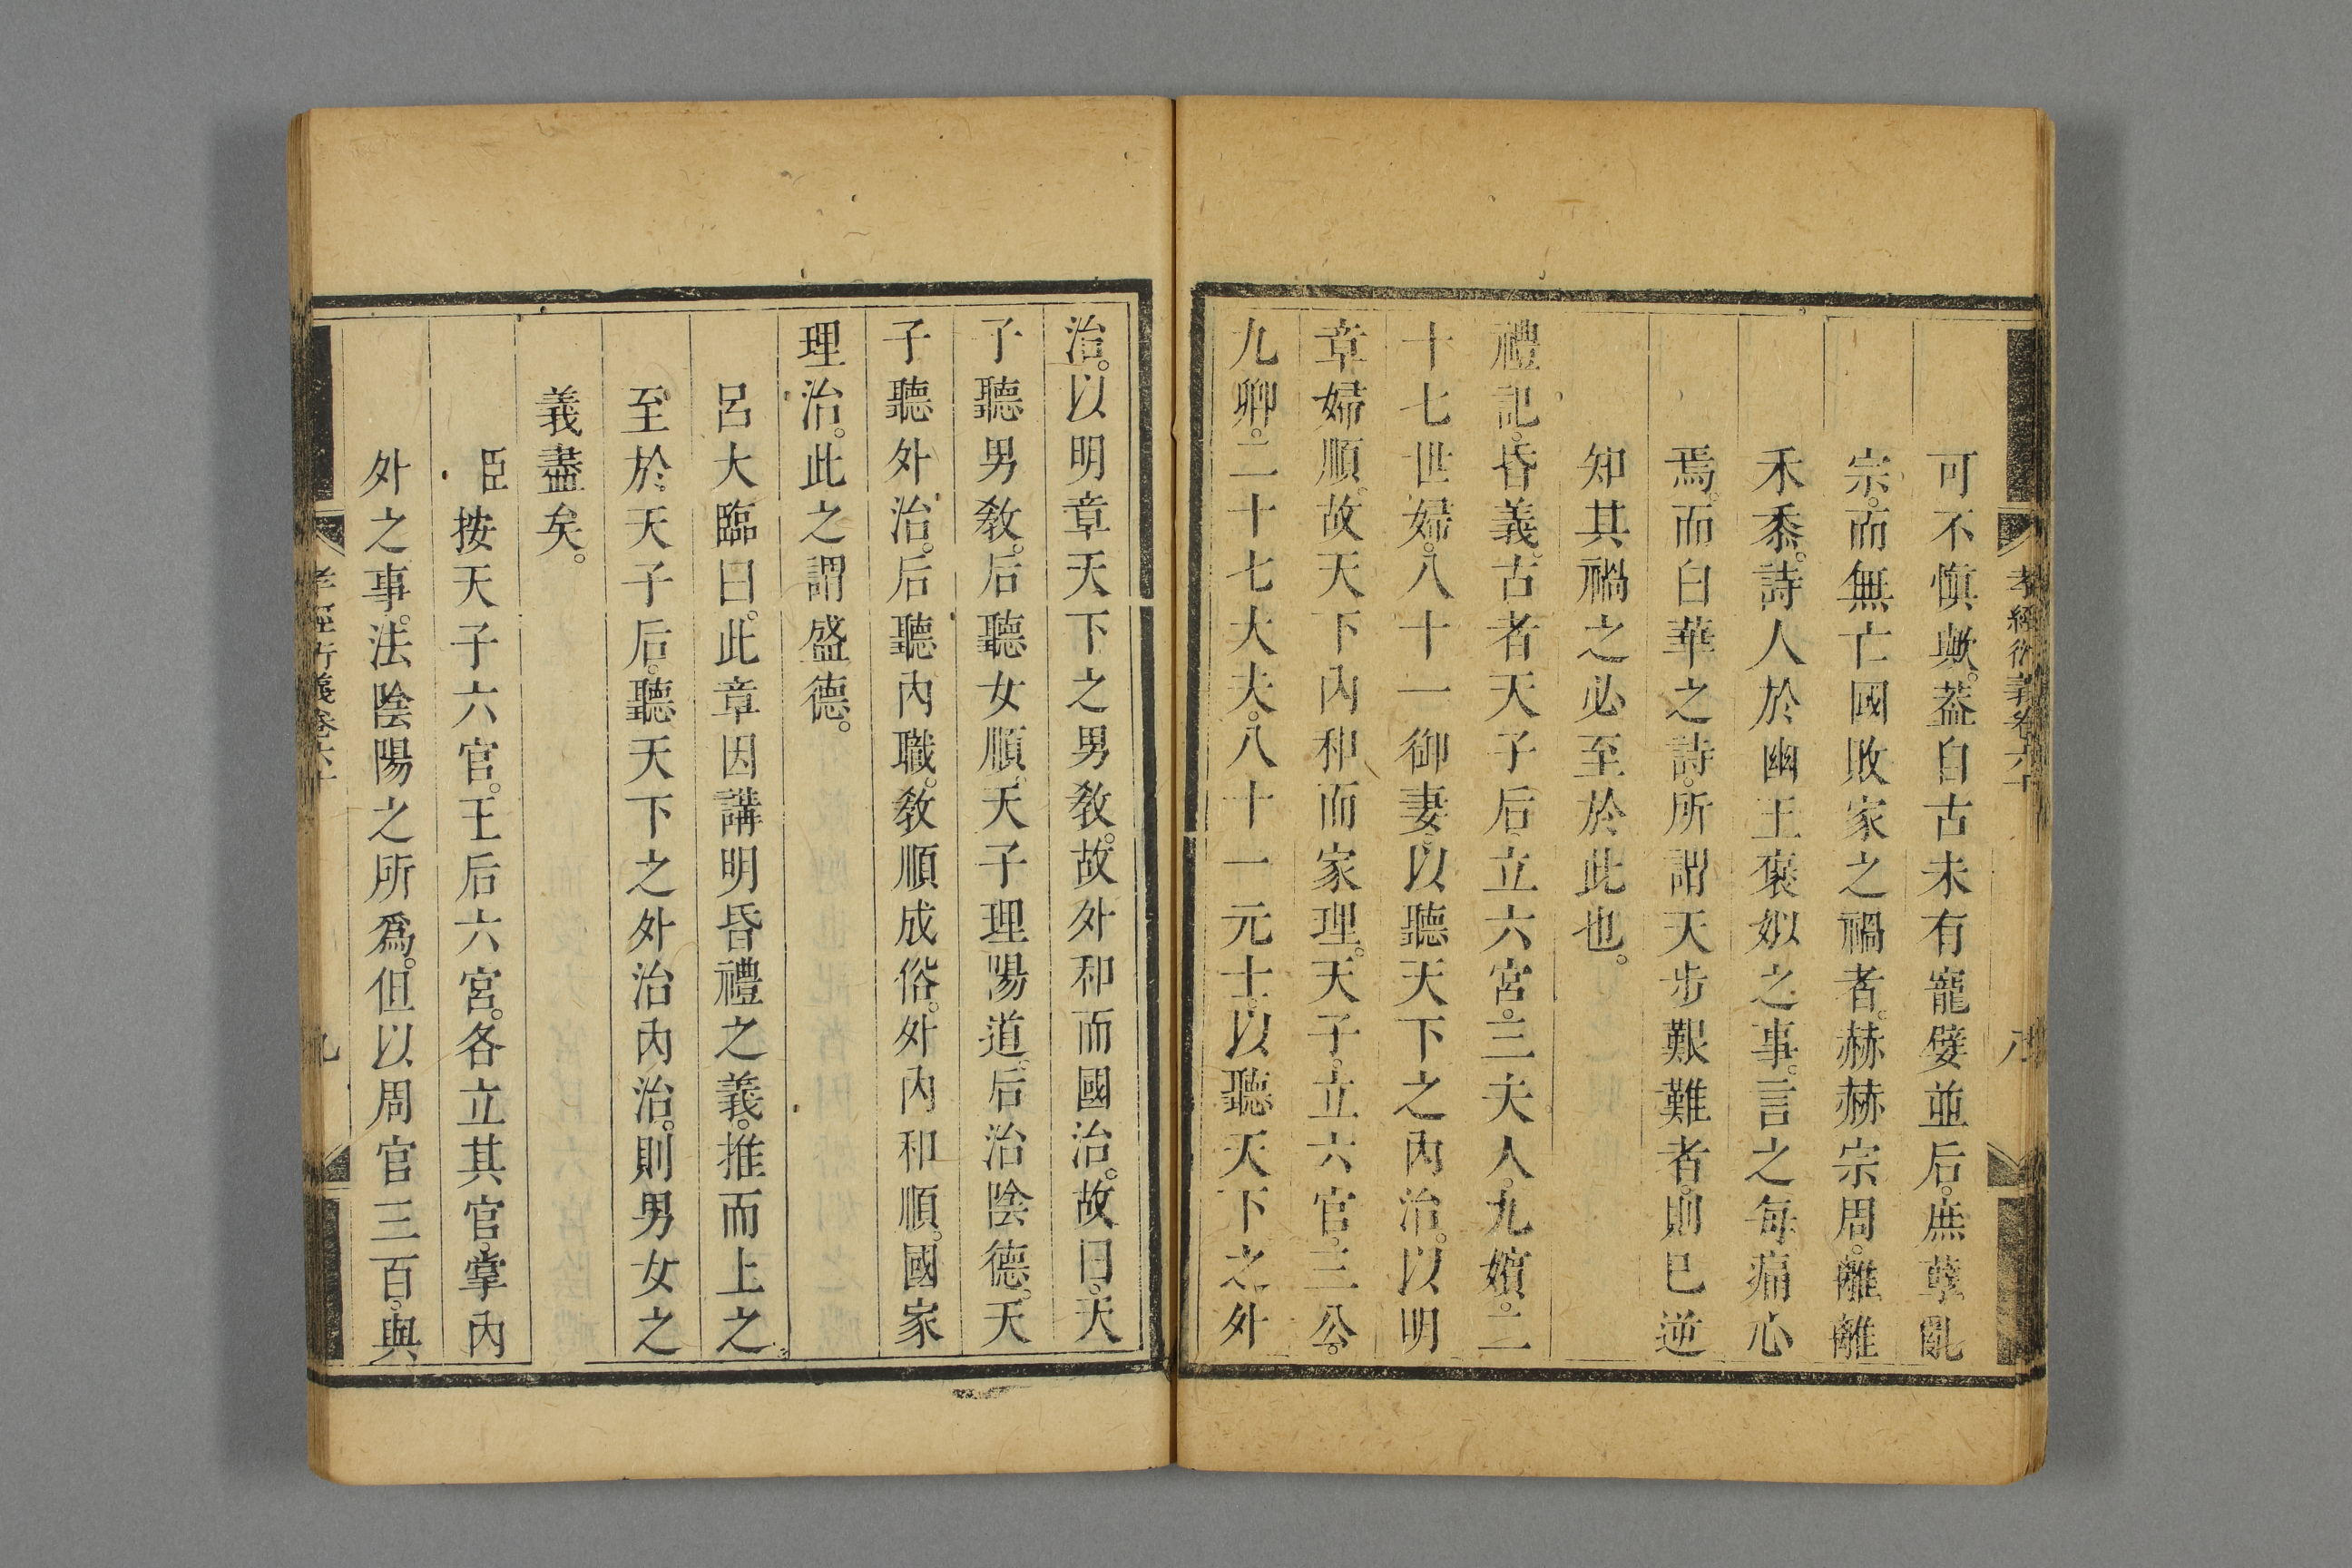 孝經衍義卷六十
八
可不愼歟。葢自古未有寵嬖並后。庶孽亂
宗。而無亡國敗家之禍者。赫赫宗周。離離
禾黍。詩人於幽王褒姒之事。言之每痛心
焉。而白華之詩。所謂天步艱難者。則巳逆
知其禍之必至於此也。
禮記。昏義。古者天子后。立六宮。三夫人。九嬪。二
十七世婦。八十一御妻。以聽天下之內治。以明
章婦順。故天下內和而家理。天子。立六官。三公。
九卿。二十七大夫。八十一元士。以聽天下之外
治。以明章天下之男敎。故外和而國治。故曰。天
子聽男敎。后聽女順。天子理陽道。后治陰德。天
子聽外治。后聽內職。敎順成俗。外內和順。國家
理治。此之謂盛德。
呂大臨曰。此章因講明昏禮之義。推而上之
至於天子后。聽天下之外治內治。則男女之
義盡矣。
臣按天子六官。王后六宮。各立其官。掌內
外之事。法陰陽之所爲。但以周官三百。與
孝經衍義卷六十
九